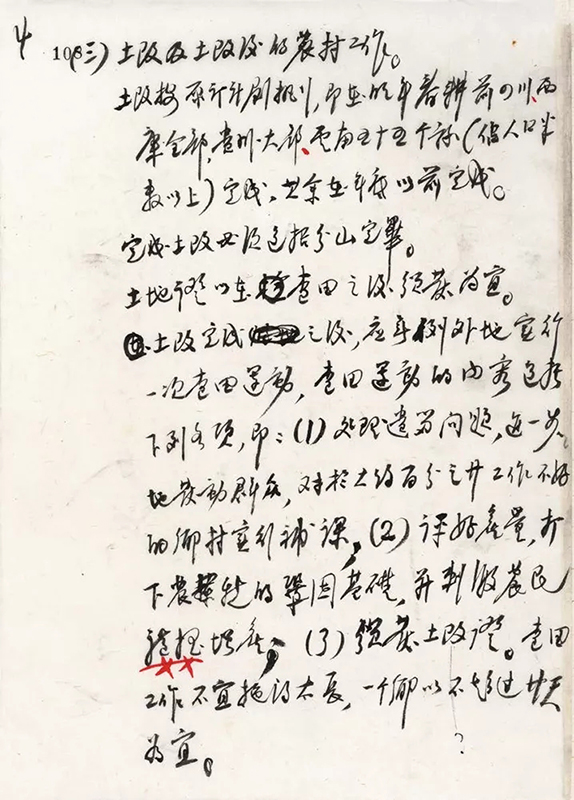 4
10(三)土改及土改后的农村工作。
土改按原计划执行,即在明年春耕前四川、西
康全部,贵州大部、云南五十五个县(占人口半
数以上)完成,其余在年底以前完成。
完成土改必须包括分山完毕。
土地证以在查田之后颁发为宜。
土改完成之后,应无例外地实行
一次查田运动,查田运动的内容包括
下列各项,即:(1)处理遗留问题,进一步
地发动群众,对于大约百分之廿工作不好
的乡村实行补课,(2)评好产量,打
下农业税的巩固基础,并刺激农民
积极增产;(3)颁发土改证。查田
工作不宜拖得太长,一个乡以不超过廿天
为宜。
?